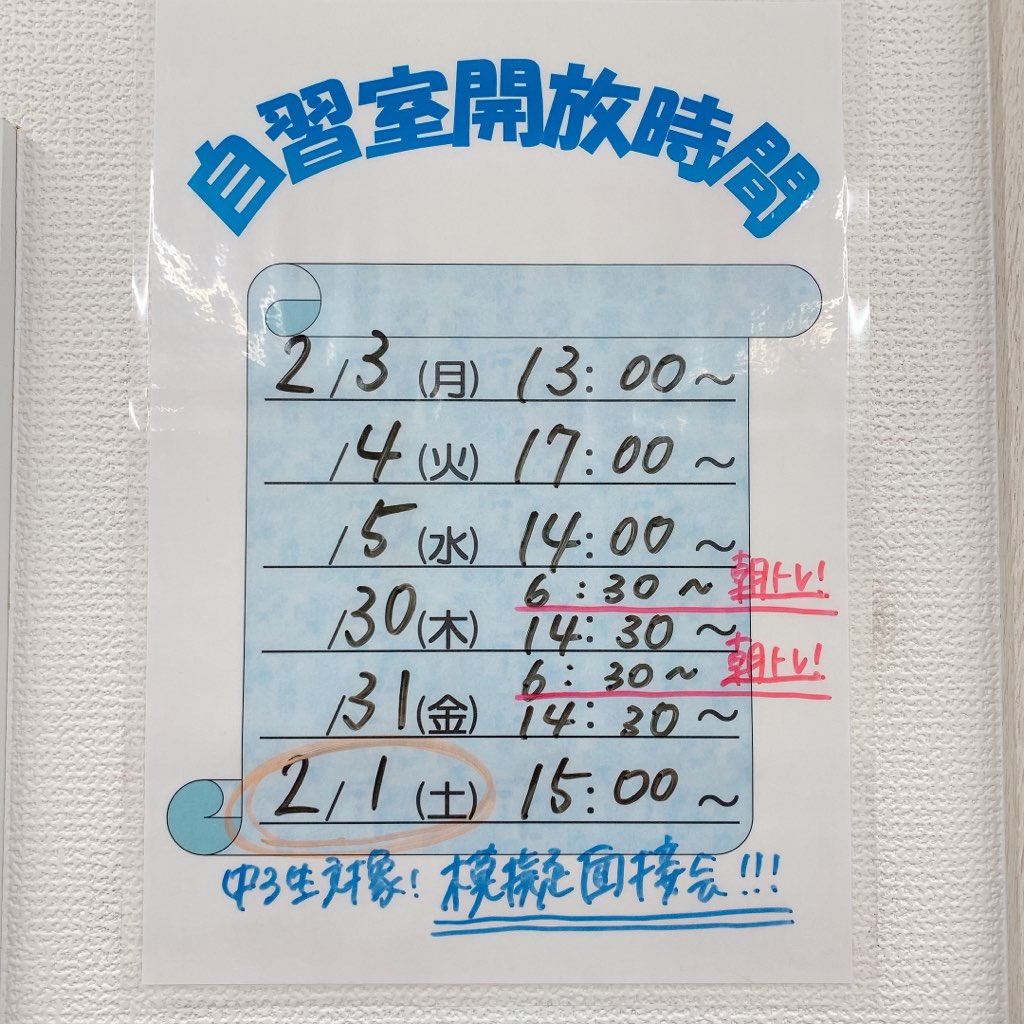 自習室開放時間
2/3(月) 13:00~
/4(火) 17:00~
/5(水) 14:00~
/30(木) 6:30~ 朝トレ!
14:30~
/31(金) 6:30~ 朝トレ!
14:30~
2/1(土) 15:00~
中3生対象! 模擬面接会!!!